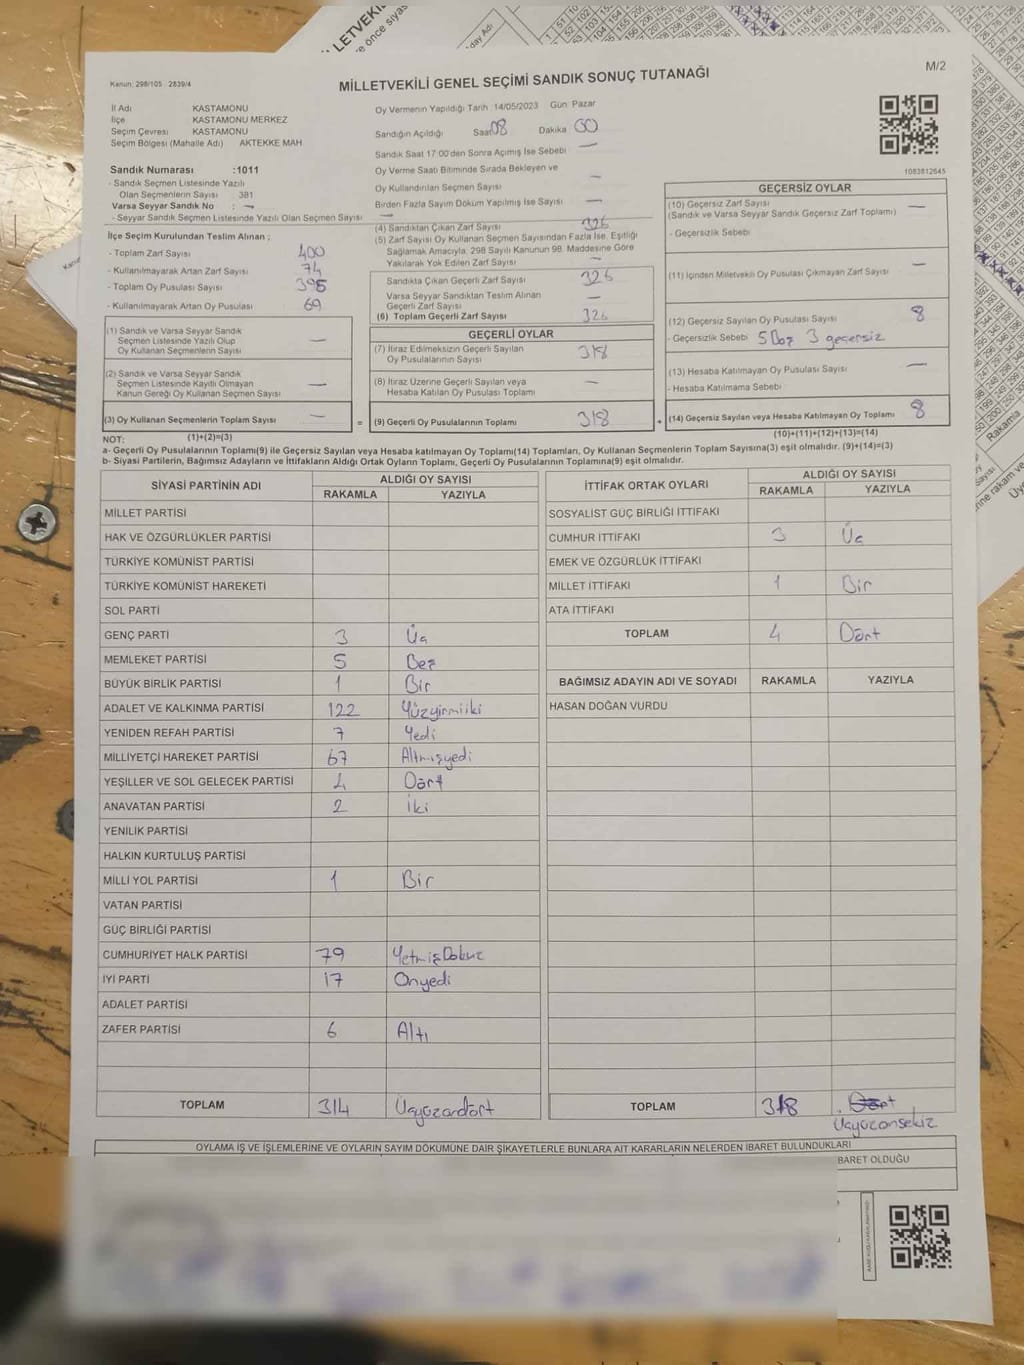 LETVEKİ
e önce siyas
day Adı
M/2
Kanun: 298/105 2839/4
MİLLETVEKİLİ GENEL SEÇİMİ SANDIK SONUÇ TUTANAĞI
İl Adı KASTAMONU
İlçe KASTAMONU MERKEZ
Seçim Çevresi KASTAMONU
Seçim Bölgesi (Mahalle Adı) AKTEKKE MAH
Sandık Numarası :1011
- Sandık Seçmen Listesinde Yazılı
Olan Seçmenlerin Sayısı : 381
Varsa Seyyar Sandık No : —
- Seyyar Sandık Seçmen Listesinde Yazılı Olan Seçmen Sayısı —
İlçe Seçim Kurulundan Teslim Alınan ;
- Toplam Zarf Sayısı 400
- Kullanılmayarak Artan Zarf Sayısı 74
- Toplam Oy Pusulası Sayısı 395
- Kullanılmayarak Artan Oy Pusulası 69
(1) Sandık ve Varsa Seyyar Sandık
Seçmen Listesinde Yazılı Olup
Oy Kullanan Seçmenlerin Sayısı —
(2) Sandık ve Varsa Seyyar Sandık
Seçmen Listesinde Kayıtlı Olmayan
Kanun Gereği Oy Kullanan Seçmen Sayısı —
(3) Oy Kullanan Seçmenlerin Toplam Sayısı —
(1)+(2)=(3)
Oy Vermenin Yapıldığı Tarih :14/05/2023 Gün: Pazar
Sandığın Açıldığı Saat 08 Dakika 00
Sandık Saat 17:00'den Sonra Açılmış İse Sebebi : —
Oy Verme Saati Bitiminde Sırada Bekleyen ve
Oy Kullandırılan Seçmen Sayısı : —
Birden Fazla Sayım Döküm Yapılmış İse Sayısı : —
(4) Sandıktan Çıkan Zarf Sayısı : 326
(5) Zarf Sayısı Oy Kullanan Seçmen Sayısından Fazla İse, Eşitliği
Sağlamak Amacıyla; 298 Sayılı Kanunun 98. Maddesine Göre
Yakılarak Yok Edilen Zarf Sayısı : —
Sandıkta Çıkan Geçerli Zarf Sayısı : 326
Varsa Seyyar Sandıktan Teslim Alınan
Geçerli Zarf Sayısı : —
(6) Toplam Geçerli Zarf Sayısı : 326
GEÇERLİ OYLAR
(7) İtiraz Edilmeksizin Geçerli Sayılan
Oy Pusulalarının Sayısı : 318
(8) İtiraz Üzerine Geçerli Sayılan veya
Hesaba Katılan Oy Pusulaları Toplamı : —
= (9) Geçerli Oy Pusulalarının Toplamı : 318
1083812645
GEÇERSİZ OYLAR
(10) Geçersiz Zarf Sayısı : —
(Sandık ve Varsa Seyyar Sandık Geçersiz Zarf Toplamı)
- Geçersizlik Sebebi :
(11) İçinden Milletvekili Oy Pusulası Çıkmayan Zarf Sayısı : —
(12) Geçersiz Sayılan Oy Pusulası Sayısı : 8
- Geçersizlik Sebebi : 5 Boş 3 geçersiz
(13) Hesaba Katılmayan Oy Pusulası Sayısı : —
- Hesaba Katılmama Sebebi :
+ (14) Geçersiz Sayılan veya Hesaba Katılmayan Oy Toplamı : 8
(10)+(11)+(12)+(13)=(14)
NOT:
a- Geçerli Oy Pusulalarının Toplamı(9) ile Geçersiz Sayılan veya Hesaba katılmayan Oy Toplamı(14) Toplamları, Oy Kullanan Seçmenlerin Toplam Sayısına(3) eşit olmalıdır. (9)+(14)=(3)
b- Siyasi Partilerin, Bağımsız Adayların ve İttifakların Aldığı Ortak Oyların Toplamı, Geçerli Oy Pusulalarının Toplamına(9) eşit olmalıdır.
SİYASİ PARTİNİN ADI ALDIĞI OY SAYISI
RAKAMLA YAZIYLA
MİLLET PARTİSİ
HAK VE ÖZGÜRLÜKLER PARTİSİ
TÜRKİYE KOMÜNİST PARTİSİ
TÜRKİYE KOMÜNİST HAREKETİ
SOL PARTİ
GENÇ PARTİ 3 Üç
MEMLEKET PARTİSİ 5 Beş
BÜYÜK BİRLİK PARTİSİ 1 Bir
ADALET VE KALKINMA PARTİSİ 122 Yüzyirmiiki
YENİDEN REFAH PARTİSİ 7 Yedi
MİLLİYETÇİ HAREKET PARTİSİ 67 Altmışyedi
YEŞİLLER VE SOL GELECEK PARTİSİ 4 Dört
ANAVATAN PARTİSİ 2 İki
YENİLİK PARTİSİ
HALKIN KURTULUŞ PARTİSİ
MİLLİ YOL PARTİSİ 1 Bir
VATAN PARTİSİ
GÜÇ BİRLİĞİ PARTİSİ
CUMHURİYET HALK PARTİSİ 79 YetmişDokuz
İYİ PARTİ 17 Onyedi
ADALET PARTİSİ
ZAFER PARTİSİ 6 Altı
TOPLAM 314 Üçyüzondört
İTTİFAK ORTAK OYLARI ALDIĞI OY SAYISI
RAKAMLA YAZIYLA
SOSYALİST GÜÇ BİRLİĞİ İTTİFAKI
CUMHUR İTTİFAKI 3 Üç
EMEK VE ÖZGÜRLÜK İTTİFAKI
MİLLET İTTİFAKI 1 Bir
ATA İTTİFAKI
TOPLAM 4 Dört
BAĞIMSIZ ADAYIN ADI VE SOYADI RAKAMLA YAZIYLA
HASAN DOĞAN VURDU
TOPLAM 318 Dört
Üçyüzonsekiz
OYLAMA İŞ VE İŞLEMLERİNE VE OYLARIN SAYIM DÖKÜMÜNE DAİR ŞİKAYETLERLE BUNLARA AİT KARARLARIN NELERDEN İBARET BULUNDUKLARI
BARET OLDUĞU